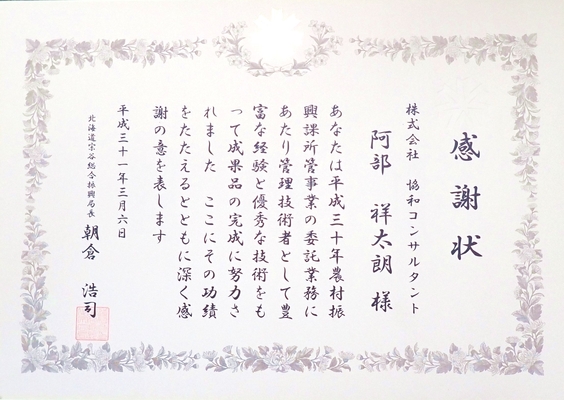 感謝状
株式会社 協和コンサルタント
阿部 祥太朗 様
あなたは平成三十年農村振
興課所管事業の委託業務に
あたり管理技術者として豊
富な経験と優秀な技術をも
って成果品の完成に努力さ
れました ここにその功績
をたたえるとともに深く感
謝の意を表します
平成三十一年三月六日
北海道宗谷総合振興局長 朝倉 浩司